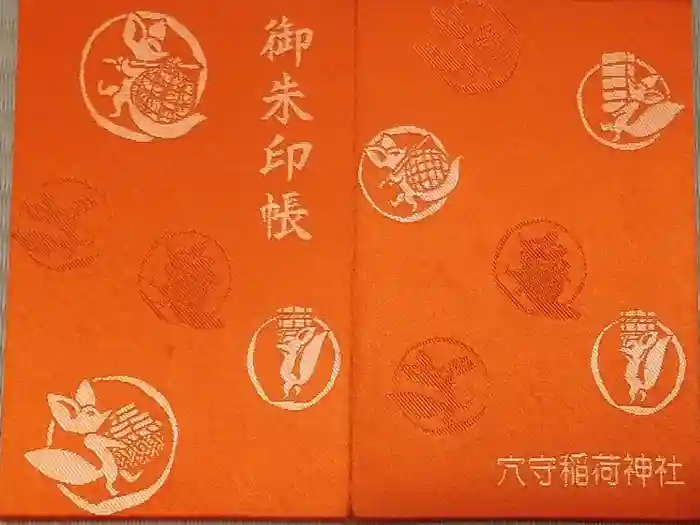 御朱印帳
穴守稲荷神社